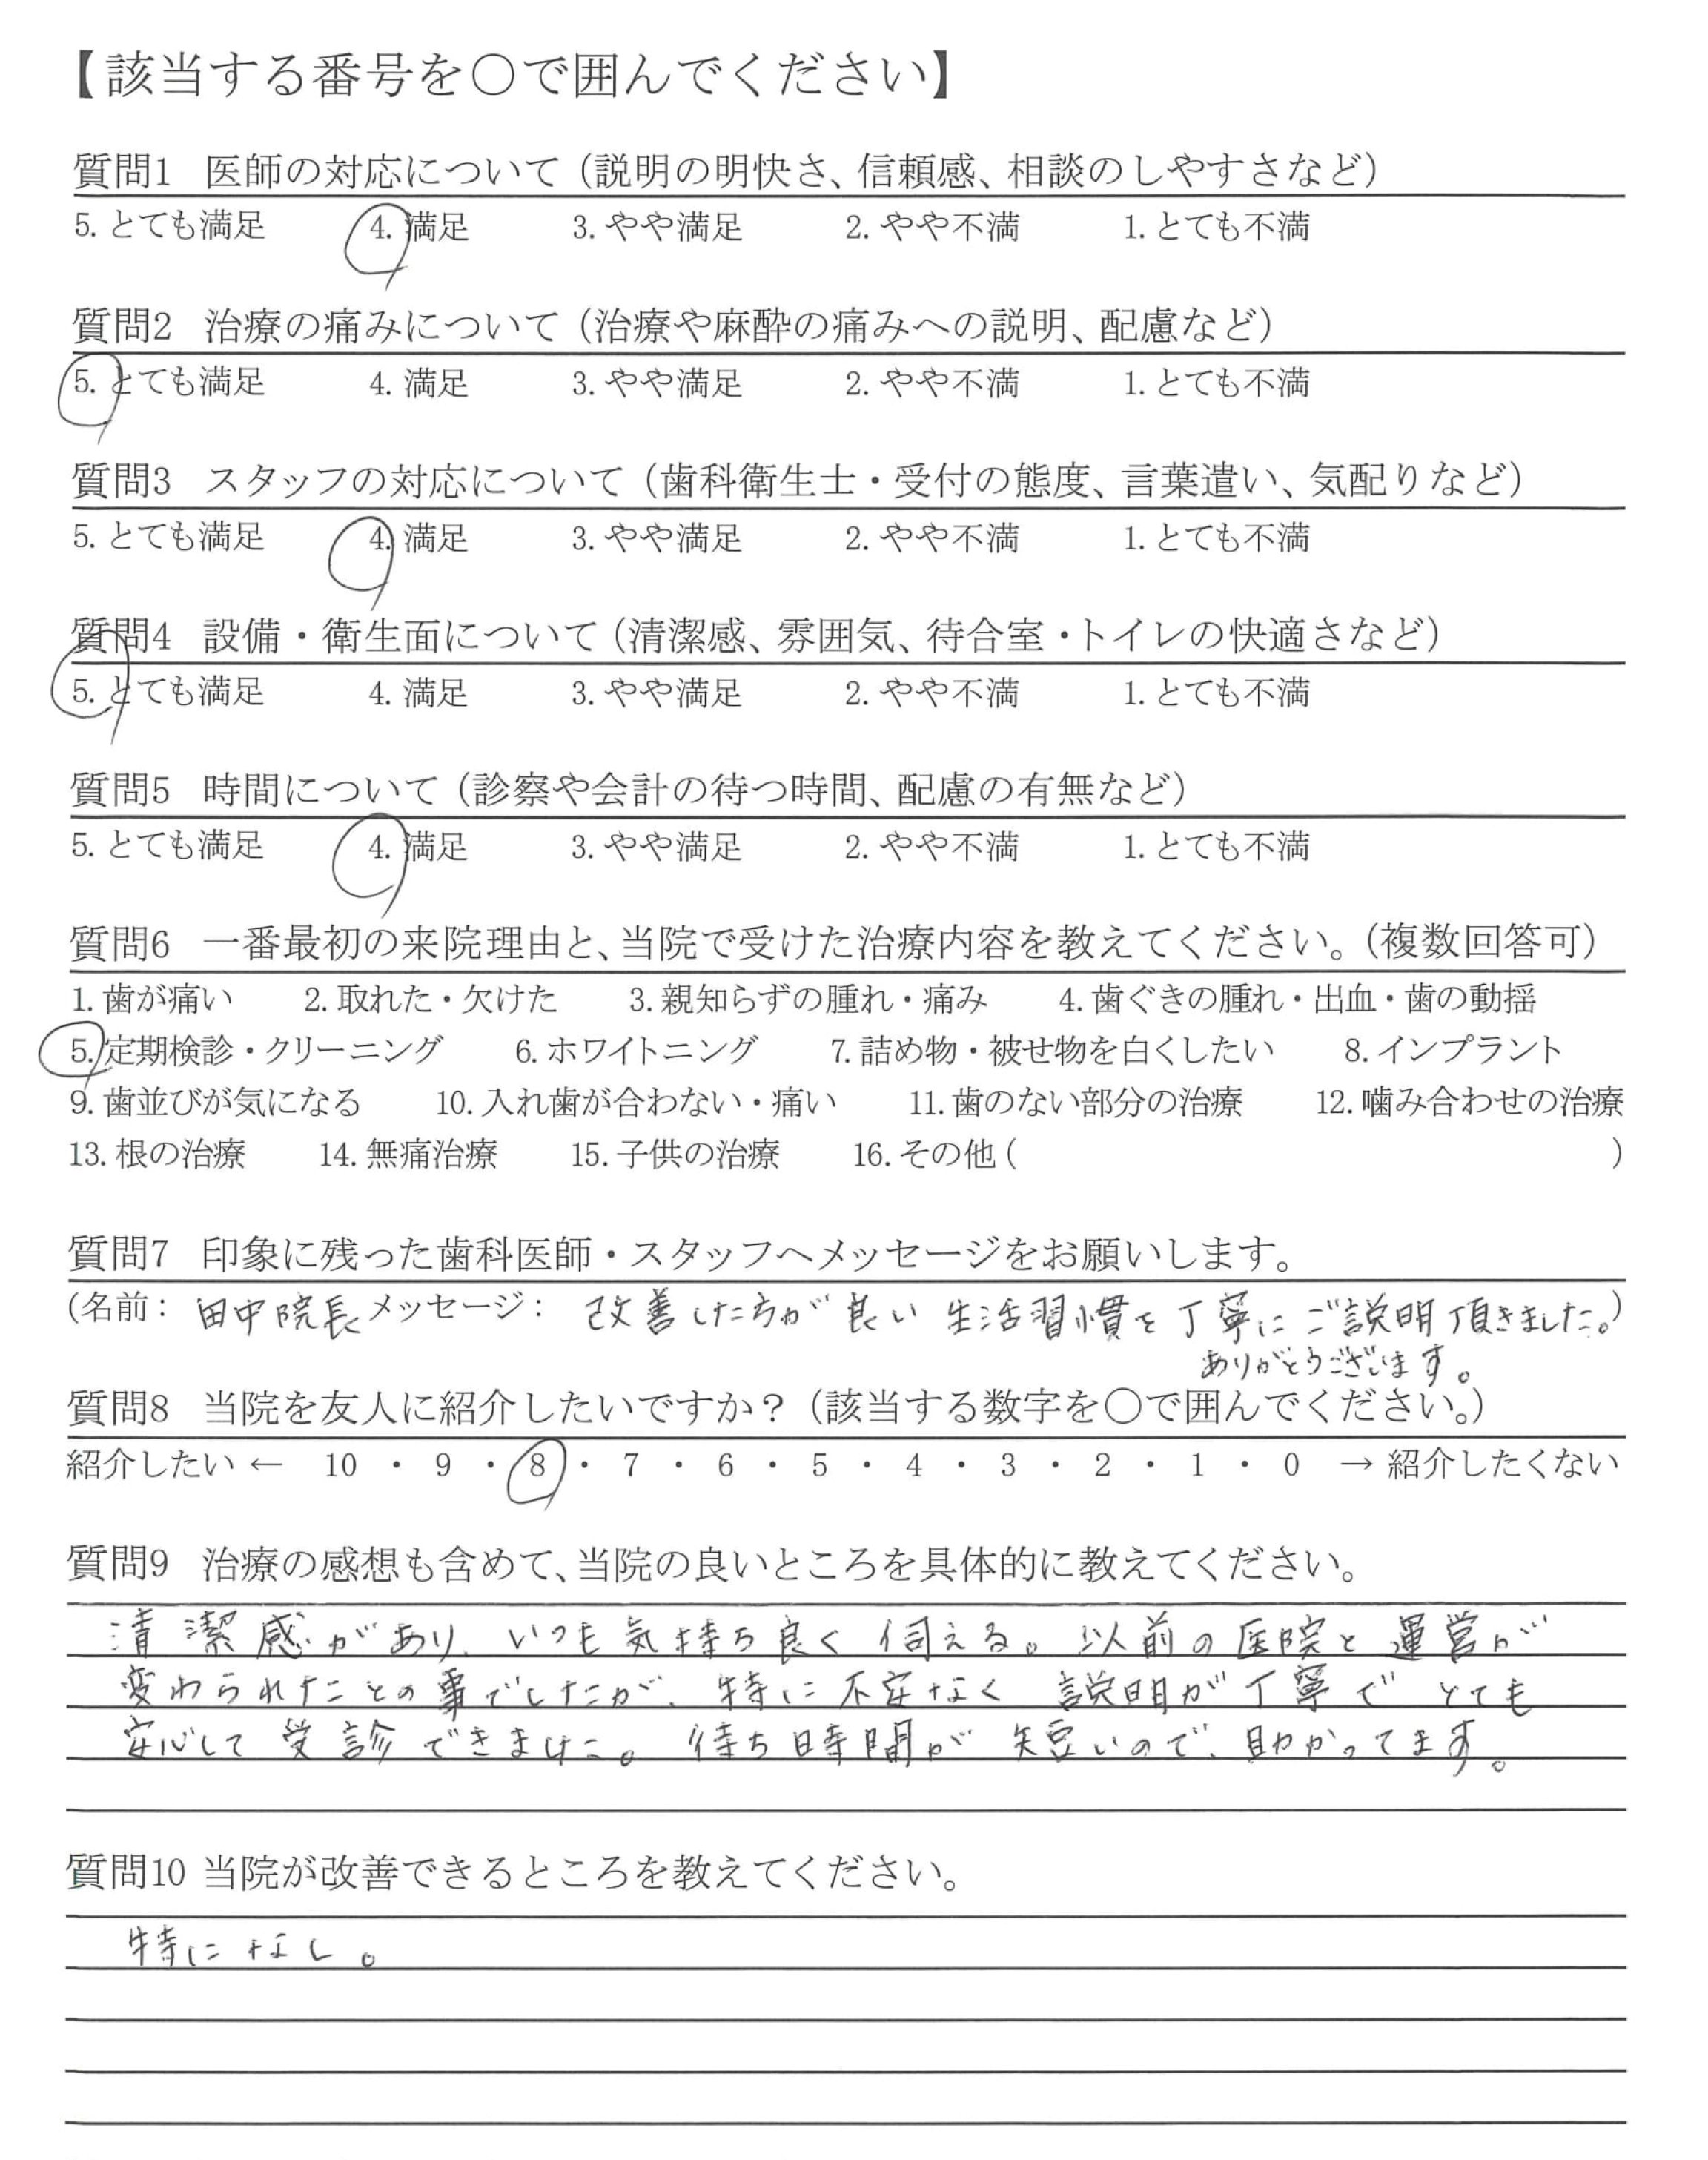 【該当する番号を〇で囲んでください】
質問1 医師の対応について（説明の明快さ、信頼感、相談のしやすさなど）
5. とても満足 4. 満足 3. やや満足 2. やや不満 1. とても不満
質問2 治療の痛みについて（治療や麻酔の痛みへの説明、配慮など）
5. とても満足 4. 満足 3. やや満足 2. やや不満 1. とても不満
質問3 スタッフの対応について（歯科衛生士・受付の態度、言葉遣い、気配りなど）
5. とても満足 4. 満足 3. やや満足 2. やや不満 1. とても不満
質問4 設備・衛生面について（清潔感、雰囲気、待合室・トイレの快適さなど）
5. とても満足 4. 満足 3. やや満足 2. やや不満 1. とても不満
質問5 時間について（診察や会計の待つ時間、配慮の有無など）
5. とても満足 4. 満足 3. やや満足 2. やや不満 1. とても不満
質問6 一番最初の来院理由と、当院で受けた治療内容を教えてください。（複数回答可）
1. 歯が痛い 2. 取れた・欠けた 3. 親知らずの腫れ・痛み 4. 歯ぐきの腫れ・出血・歯の動揺
5. 定期検診・クリーニング 6. ホワイトニング 7. 詰め物・被せ物を白くしたい 8. インプラント
9. 歯並びが気になる 10. 入れ歯が合わない・痛い 11. 歯のない部分の治療 12. 噛み合わせの治療
13. 根の治療 14. 無痛治療 15. 子供の治療 16. その他（ ）
質問7 印象に残った歯科医師・スタッフへメッセージをお願いします。
（名前： 田中院長 メッセージ： 改善した方が良い生活習慣を丁寧にご説明頂きました。）
ありがとうございます。
質問8 当院を友人に紹介したいですか？（該当する数字を〇で囲んでください。）
紹介したい ← 10 ・ 9 ・ 8 ・ 7 ・ 6 ・ 5 ・ 4 ・ 3 ・ 2 ・ 1 ・ 0 → 紹介したくない
質問9 治療の感想も含めて、当院の良いところを具体的に教えてください。
清潔感があり、いつも気持ち良く伺える。以前の医院と運営が
変わられたことの事でしたが、特に不安なく説明が丁寧でとても
安心して受診できました。待ち時間が短いので、助かってます。
質問10 当院が改善できるところを教えてください。
特になし。